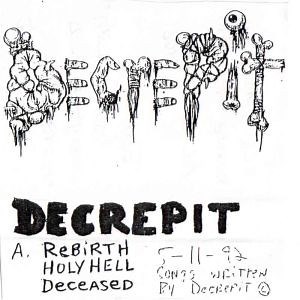 DECREPIT
DECREPIT
A. ReBiRTH
HOLY HELL
DeCeASED
5-11-92
SONGS WRITTEN
BY DECREPIT ©